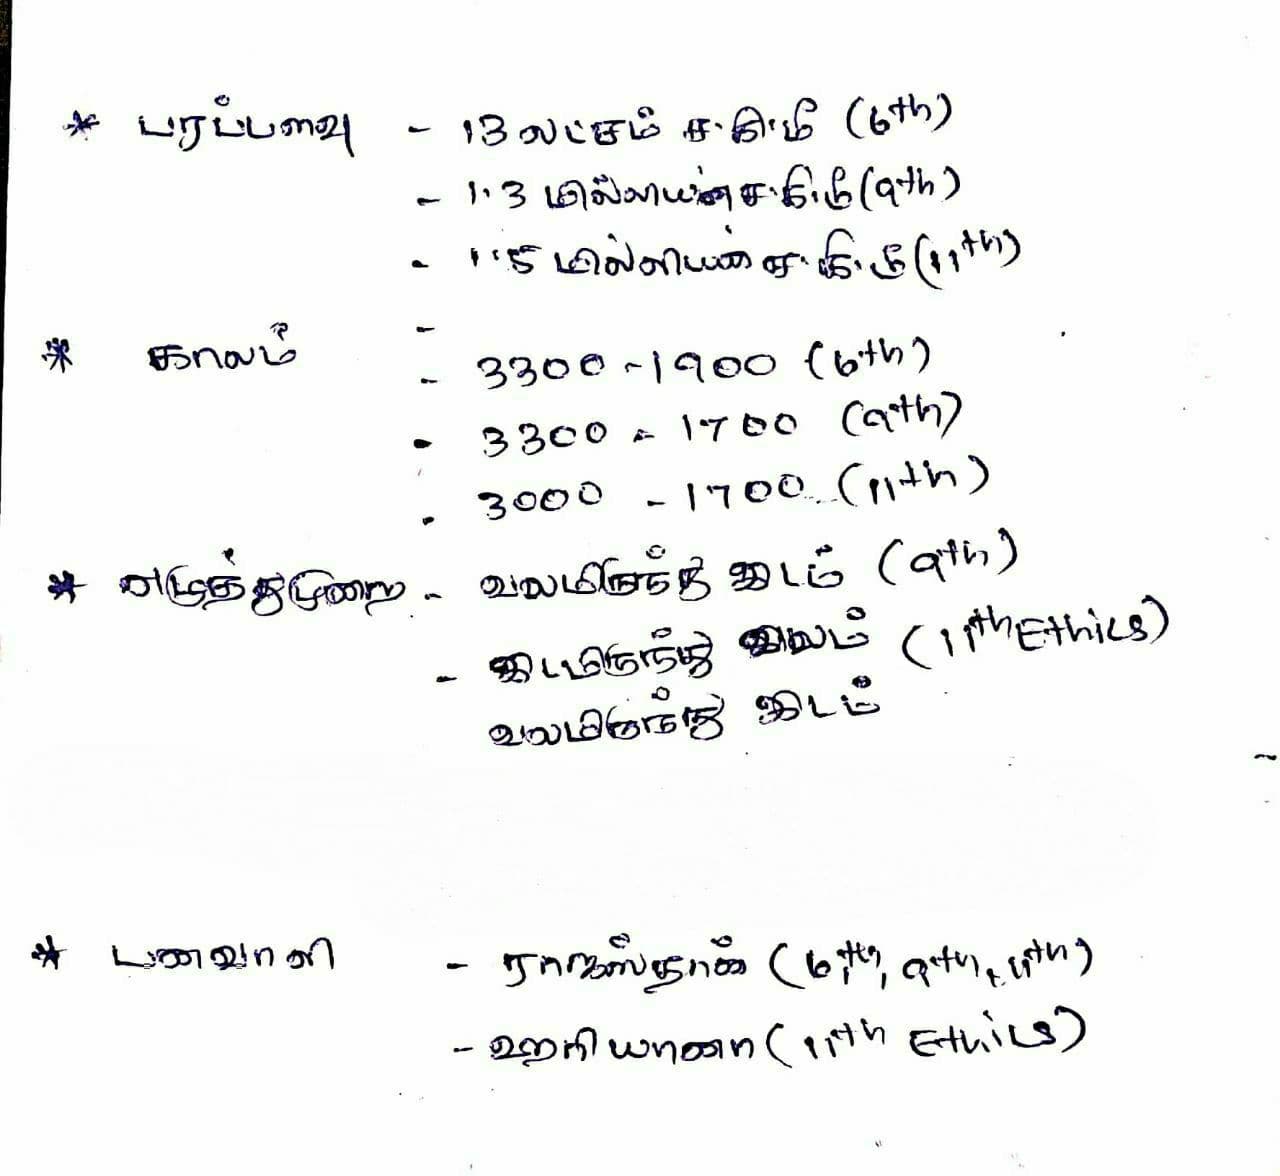 * பரப்பளவு - 13 லட்சம் ச.கி.மீ (6th)
- 1.3 மில்லியன் ச.கி.மீ (9th)
- 1.5 மில்லியன் ச.கி.மீ (11th)
-
* காலம்
- 3300 - 1900 (6th)
- 3300 - 1700 (9th)
- 3000 - 1700 (11th)
* எழுத்துமுறை - வலமிருந்து இடம் (9th)
- இடமிருந்து வலம் (11th Ethics)
வலமிருந்து இடம்
* பனவாளி - ராஜஸ்தான் (6th, 9th, 11th)
- ஹரியானா (11th Ethics)